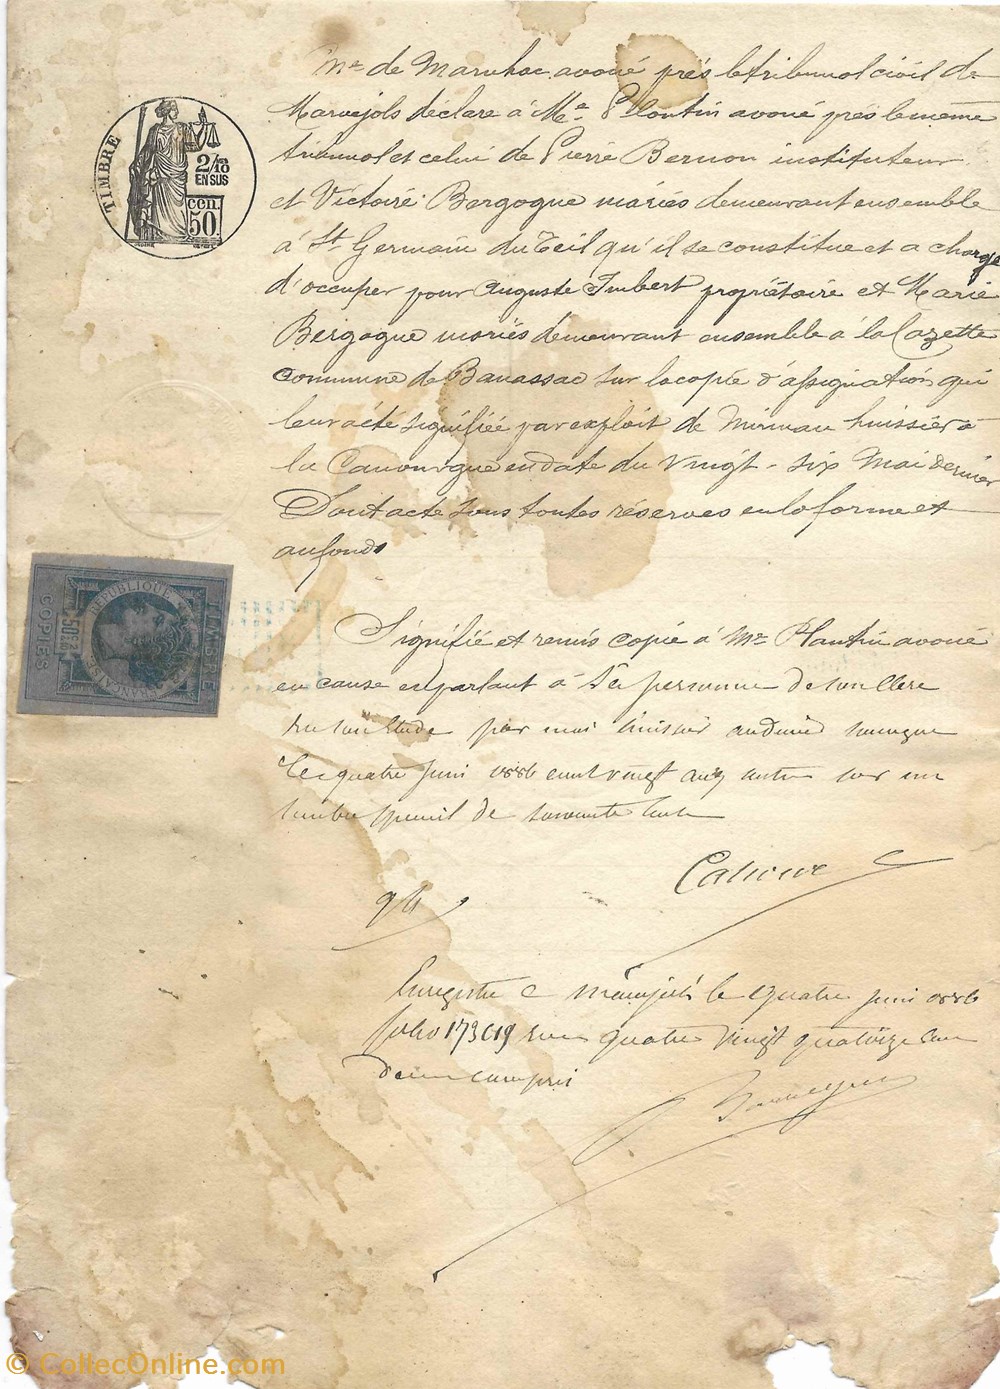 TIMBRE
2/10
EN SUS
cen.
50
Me de avoué près le tribunal civil de
Marvejols déclare à Me Plantin avoué près le même
tribunal et celui de Pierre Bernon instituteur
et Victoire Bergogne mariés demeurant ensemble
à St Germain du Teil qu'il se constitue et a charge
d'occuper pour Auguste Imbert propriétaire et Marie
Bergogne mariés demeurant ensemble à la Cazette
commune de Banassac sur la copie d'assignation qui
leur a été signifiée par exploit de huissier à
la Canourgue en date du vingt-six Mai dernier
Dont acte sous toutes réserves en la forme et
au fond
TIMBRE
COPIES
50c
REPUBLIQUE FRANÇAISE
Signifié et remis copie à Me Plantin avoué
en cause en parlant à la personne de son Clerc
en son étude par moi huissier audiencier soussigné
Le quatre juin 1886 sur un
timbre spécial de soixante
94
Enregistré à Marvejols le quatre juin 1886
folio 173 C 19 quatre vingt quatorze
compris
© CollecOnline.com